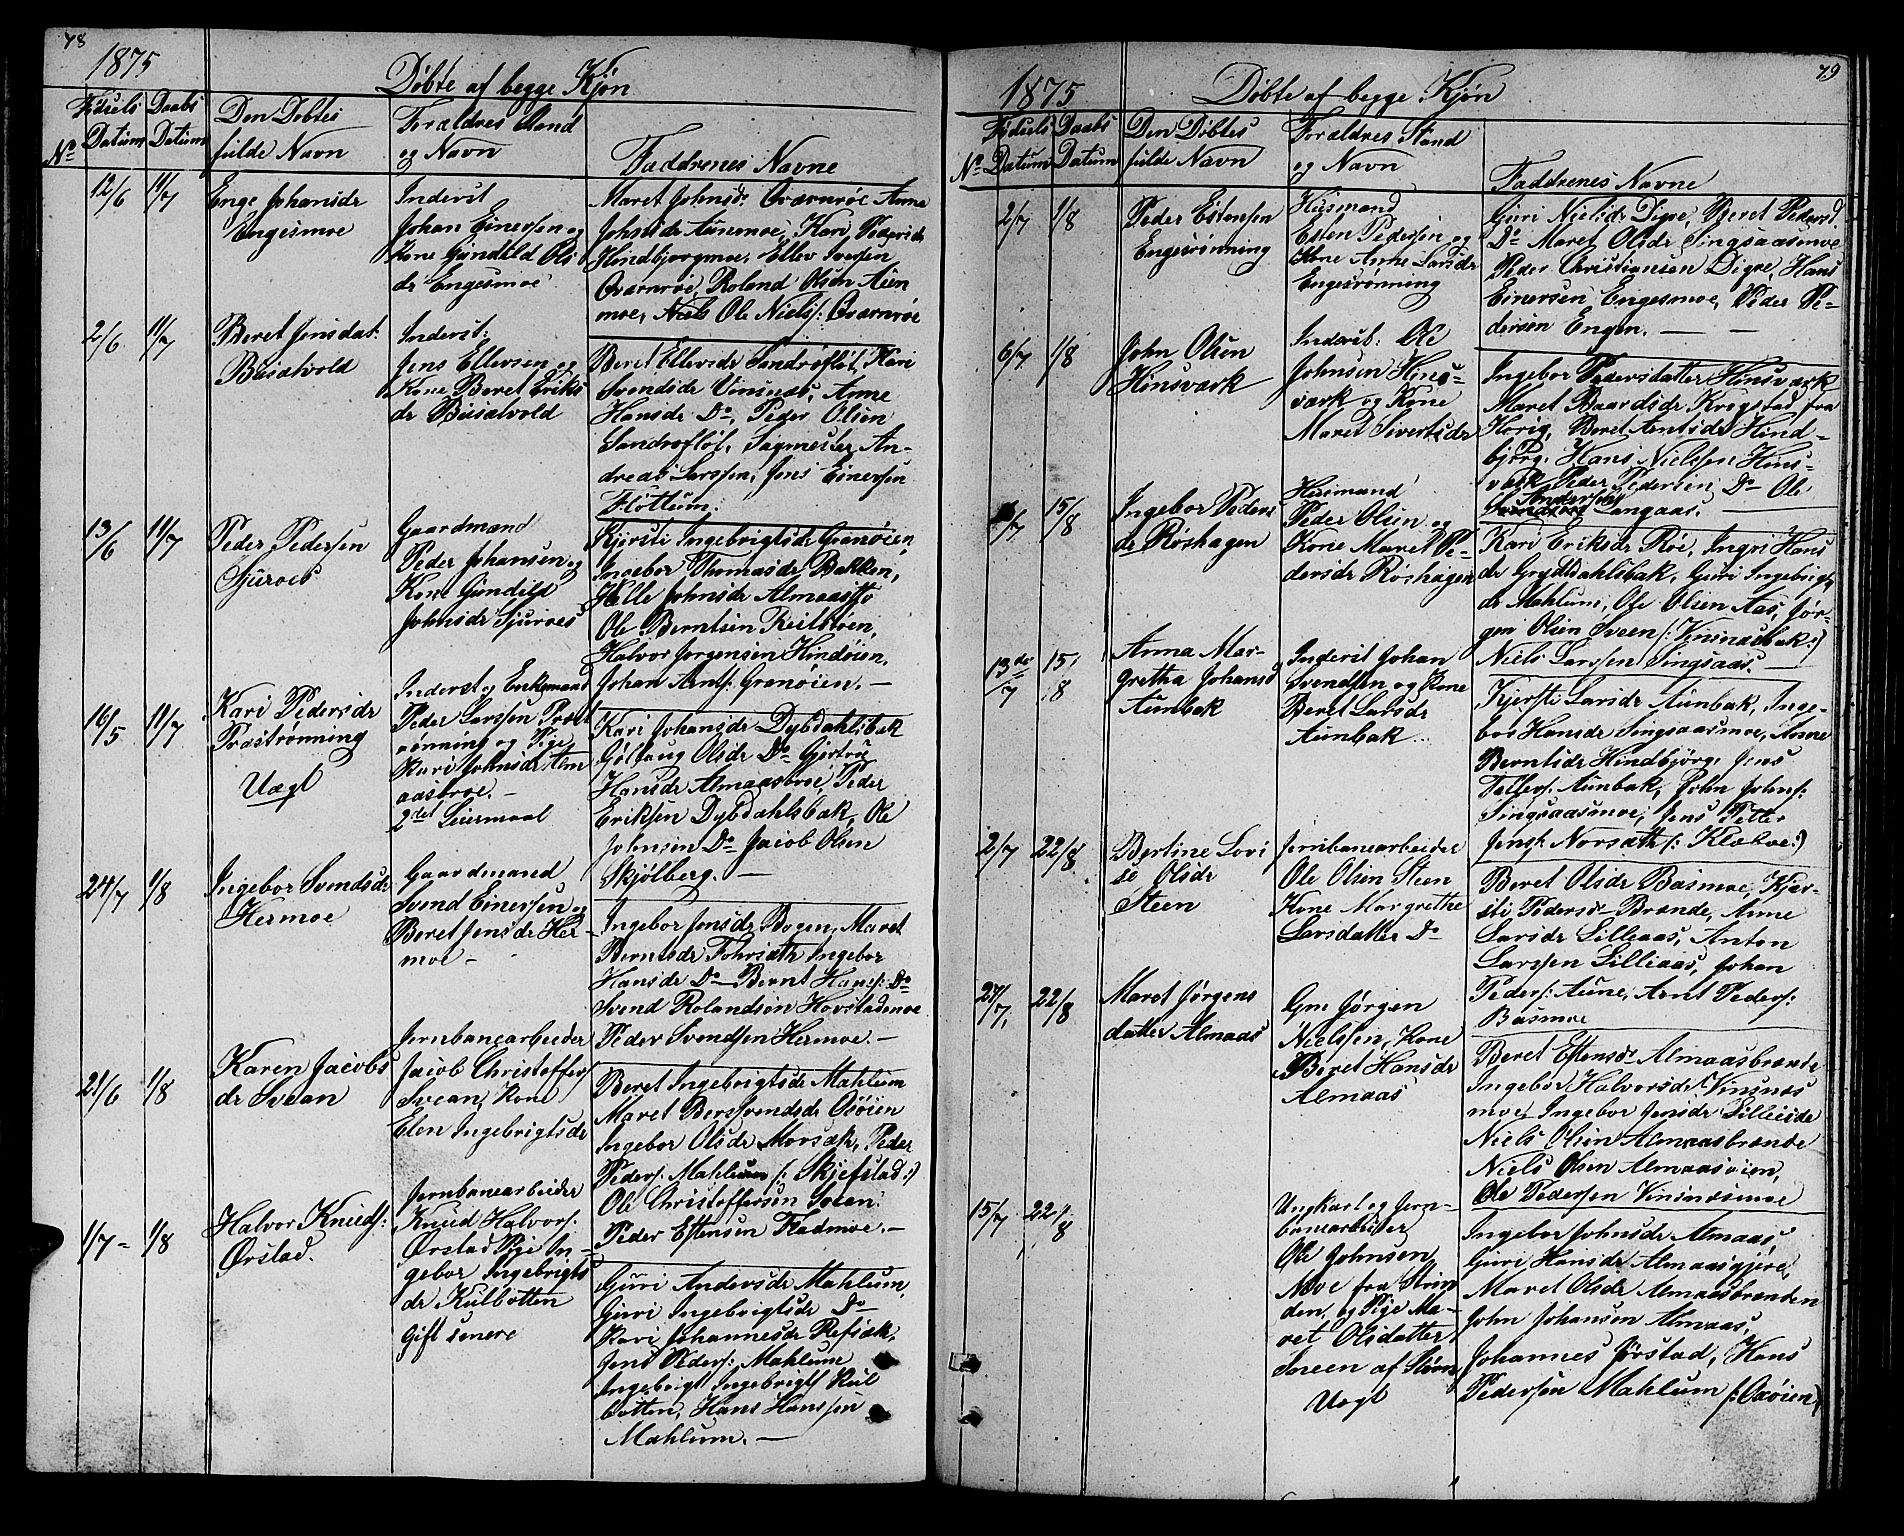 78
1875
Döbte af begge Kjön
Födsels Daabs Den Döbtes Forældres Stand
Nº Datum Datum fulde Navn og Navn Faddrenes Navne
12/6 11/7 Enge Johansdr
Engesmoe
Inderst
Johan Einersen og
Kone Gunhild Ols
dr Engesmoe
Maret Johnsdr Qværnröe Anne
Johnsdr Aunemoe, Kari Pedersdr
Hindbjorgmoe, Ellev Iversen
Qværnröe, Roland Olsen Aien
moe, Niels Ole Niels: Qværnröe
2/6 11/7 Beret Jensdat:
Busetvold
Inderst:
Jens Ellevsen og
Kone Beret Eriks
dr Busetvold
Beret Ellevsdr Sandröflöt, Kari
Svendsdr Vinsnes, Anne
Hansdr Do, Peder Olsen
Sandröflöt, Sagmester An-
dreas Larssen, Jens Einersen
Flottum.
13/6 11/7 Peder Pedersen
Sjuroes
Gaardmand
Peder Johansen og
Kone Gunhild
Johnsdr Sjuroes
Kjersti Ingebrigtsdr Granöien,
Ingebor Thomasdr Bakken,
Hælle Johnsdr Almaas
Ole Berntsen Reitstöen,
Halvor Jorgensen Hindöien,
Johan Arnts: Granöien. —
16/5 11/7 Kari Pedersdr
Præströnning
Uægt
Inderst og Enkemand
Peder Larssen Præst
rönning og Pige
Kari Johnsdr Alm
aasbroe. —
2det Leiermaal
Kari Johansdr Dybdahlsbak
Gölaug Olsdr Do Gjertru
Hansdr Almaasbroe, Peder
Eriksen Dybdahlsbak, Ole
Johnsen Do Jacob Olsen
Skjölberg. —
24/7 1/8 Ingebor Svendsdr
Hermoe
Gaardmand
Svend Einersen og
Beret Jensdr Her-
moe —
Ingebor Jensdr Bogen, Maret
Berntsdr Fohrsæth Ingebor
Hansdr Do — Bernt Hans: Do
Svend Rolandsön Hovstadmoe
Peder Svendsen Hermoe. —
21/6 1/8 Karen Jacobs
dr Svean
Jernbanearbeider
Jacob Christoffers
Svean, Kone
Elen Ingebrigtsdr
Beret Ingebrigtsdr Mahlum
Maret Svendsdr Osöien
Ingebor Olsdr Morsæk, Peder
Peders: Mahlum (: Skjefstad:)
Ole Christoffersen Svean.
Peder Estensen Fladmoe. —
1/7 — 1/8 Halvor Knuds:
Örstad.
Jernbanearbeider
Knud Halvors:
Örstad Pige In-
gebor Ingebrigts
dr Kulbotten
Gift senere
Guri Andersdr Mahlum,
Guri Ingebrigtsdr Do
Kari Johannesdr Refsæk,
Jens Peders: Mahlum
Ingebrigt Ingebrigts Kul
botten, Hans Hanssen
Mahlum. —
79
1875
Döbte af begge Kjön
Födsels Daabs Den Döbtes Forældres Stand
Nº Datum Datum fulde Navn og Navn Faddrenes Navne
2/7 1/8 Peder Estensen
Engesrönning
Husmand
Esten Pedersen og
Kone Anne Larsdr
Engesrönning
Guri Nielsdr Digre, Beret Pedersd
Do Maret Olsdr Singsaasmoe
Peder Christiansen Digre, Hans
Einersen Engesmoe, Peder Pe-
dersen Engen. — —
6/7 1/8 John Olsen
Hinsværk
Inderst: Ole
Johnsen Hins-
værk og Kone
Maret Sivertsdr
Ingebor Pedersdatter Hinsværk
Maret Baardsdr Krogstad fra
Horig, Beret Arntsdr Hind-
björg, Hans Nielssen Hins-
værk Peder Pedersen Do — Ole
Andersen Langaas. —
/7 15/8 Ingebor Peders
dr Röshagen
Husmand
Peder Olsen og
Kone Maret Pe-
dersdr Röshagen
Kari Eriksdr Röe, Ingri Hans
dr Grytdahlsbak, Guri Ingebrigts
dr Mahlum, Ole Olsen Aas, Jör-
gen Olsen Sveen (: Vinsnesbak:)
Niels Larssen Singsaas —
13de/7 15/8 Anna Mar-
gretha Johansd
Aunbak
Inderst Johan
Svendsen og Kone
Beret Larsdr
Aunbak
Kjersti Larsdr Aunbak, Inge-
bor Hansdr Singsaasmoe, Anne
Berntsdr Hindbjörg, Jens
Tellefs: Aunbak, John Johns:
Singsaasmoe, Jens Petter
Jens: Norsæth (: Klæbue:)
2/7 22/8 Bertine Lovi
se Olsdr
Steen
Jernbanearbeider
Ole Olsen Steen
Kone Margrethe
Larsdatter Do
Beret Olsdr Basmoe, Kjer-
sti Pedersdr Brænde, Anne
Larsdr Lilleaas, Anton
Larssen Lilliaas, Johan
Peders: Aune, Arnt Peders:
Basmoe
27/7 22/8 Maret Jörgens
datter Almaas
Gm Jörgen
Nielssen, Kone
Beret Hansdr
Almaas
Beret Estensdr Almaasbrænde
Ingebor Halvorsdr Vinsnes
moe, Ingebor Jensdr Lilleeide
Niels Olsen Almaasbrænde
Niels Olsen Almaasöien,
Ole Pedersen Vinsnesmoe
15/7 22/8
Ungkarl og Jern-
banearbeider
Ole Johnsen
Moe fra Strin
den, og Pige Ma-
ret Olsdatter
Sneen af Stören
Uægt
Ingebor Johnsdr Almaas
Guri Hansdr Almaasgjere,
Maret Olsdr Almaasbrænden
John Johansen Almaas,
Johannes Jörstad, Hans
Pedersen Mahlum (: Osöien)